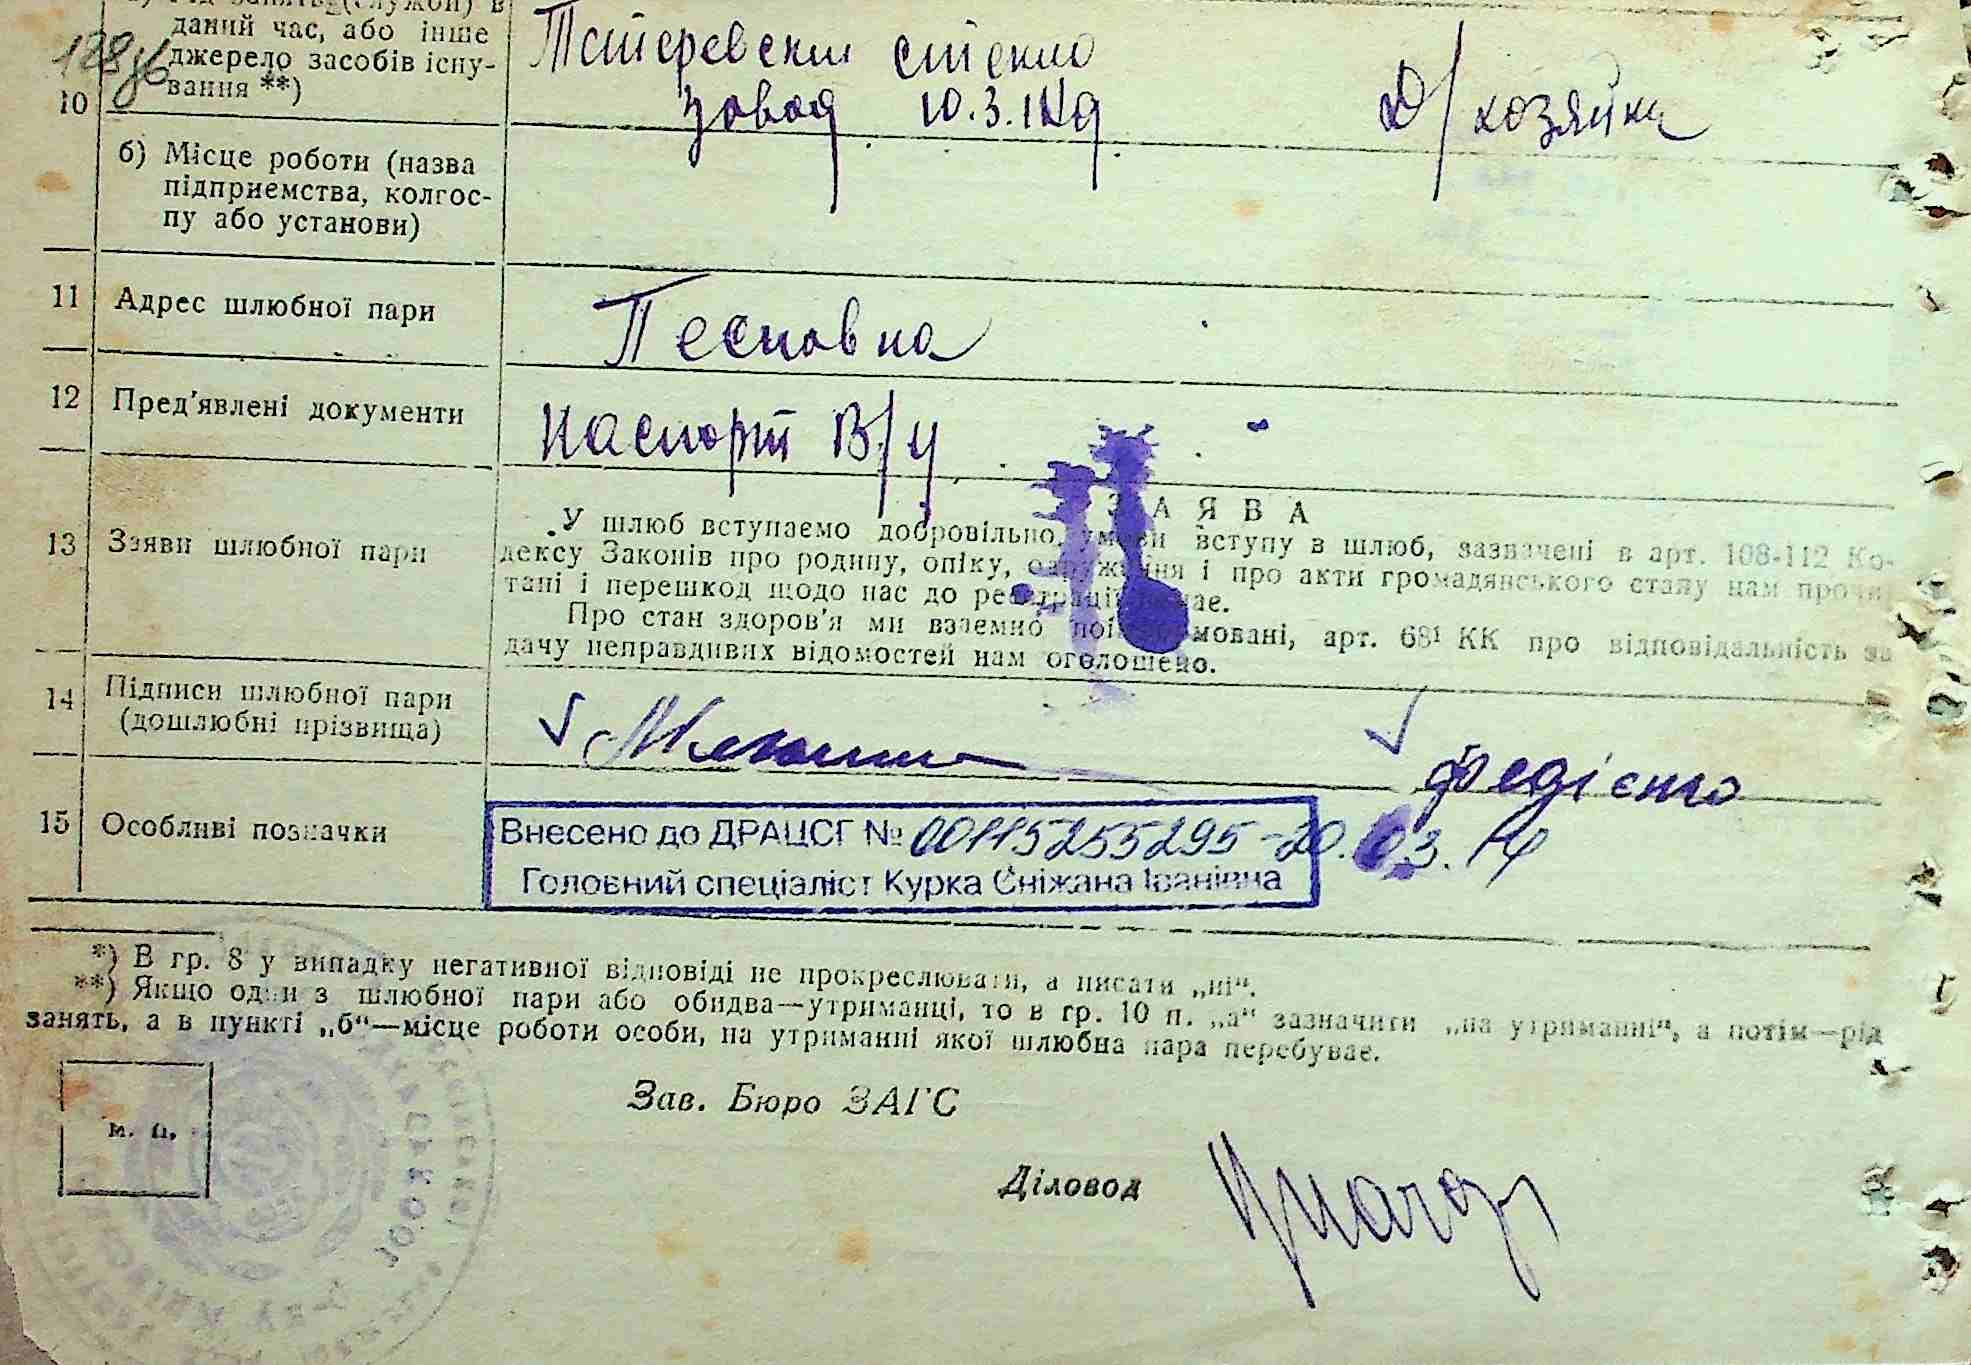 а) Рід занять (служби) в
даний час, або інше
джерело засобів існу-
вання **)
10
Тетеревский стекло
завод
Д/хозяйка
б) Місце роботи (назва
підприємства, колгос-
пу або установи)
11 Адрес шлюбної пари
Песковка
12 Пред'явлені документи
паспорт В/у
13 Заяви шлюбної пари
ЗАЯВА
У шлюб вступаємо добровільно, умови вступу в шлюб, зазначені в арт. 108-112 Ко-
дексу Законів про родину, опіку, одруження і про акти громадянського стану нам прочи-
тані і перешкод щодо нас до реєстрації немає.
Про стан здоров'я ми взаємно поінформовані, арт. 68¹ КК про відповідальність за
дачу неправдивих відомостей нам оголошено.
14 Підписи шлюбної пари
(дошлюбні прізвища)
Федієнко
15 Особливі позначки
Внесено до ДРАЦСГ № 00115255295 - 20.03.14
Головний спеціаліст Курка Сніжана Іванівна
*) В гр. 8 у випадку негативної відповіді не прокреслювати, а писати „ні“.
**) Якщо один з шлюбної пари або обидва—утриманці, то в гр. 10 п. „а“ зазначити „на утриманні“, а потім—рід
занять, а в пункті „б“—місце роботи особи, на утриманні якої шлюбна пара перебуває.
м. п.
Зав. Бюро ЗАГС
Діловод